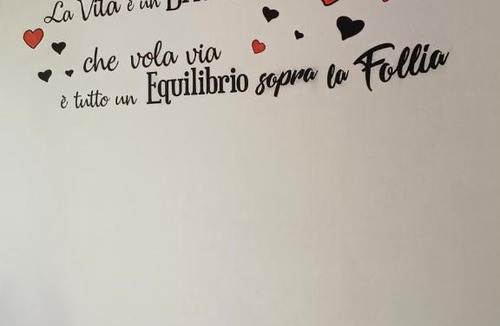 La Vita è un
che vola via
è tutto un Equilibrio sopra la Follia